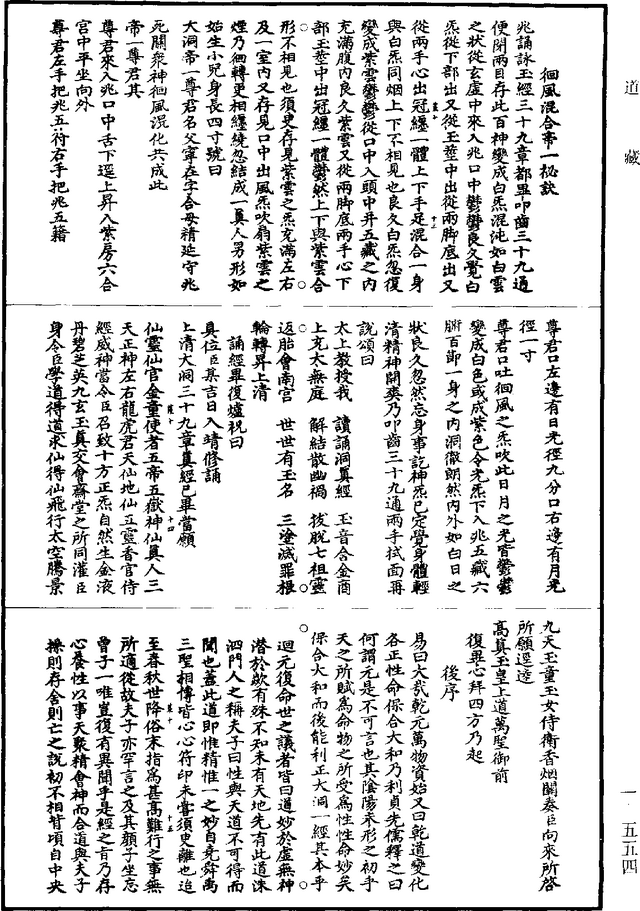 道藏
徊風混合帝一祕訣
兆誦詠玉經三十九章都畢叩齒三十九通
便閉兩目存此百神變成白炁混沌如白雲
之狀從玄虛中來入兆口中鬱鬱良久覺白
炁從下部出又從玉莖中出從兩脚底出又
從兩手心出冠纏一體上下手足混合一身
與白炁同烟上下不相見也良久白炁忽復
變成紫雲鬱鬱從口中入頭中并五藏之內
充滿腹內良久紫雲又從兩脚底兩手心下
部玉莖中出冠纏一體鬱然上下與紫雲合
形不相見也須臾存見紫雲之炁充滿左右
及一室內又存見口中出風炁吹扇紫雲之
煙乃徊轉更相纏繞忽結成一真人男形如
始生小兒身長四寸號曰
大洞帝一尊君名父寧在字合母精延守兆
死關衆神徊風混化共成此
帝一尊君其
尊君來入兆口中舌下逕上昇入紫房六合
宮中平坐向外
尊君左手把兆五符右手把兆五籍
尊君口左邊有日光徑九分口右邊有月光
徑一寸
尊君口吐徊風之炁吹此日月之光皆鬱鬱
變成白色或成紫色令光炁下入兆五藏六
腑百節一身之內洞徹朗然內外如白日之
狀良久忽然忘身事訖神炁已定覺身體輕
清精神開爽乃叩齒三十九通兩手拭面再
說頌曰
太上教授我　讀誦洞真經　玉音合金商
上充太無庭　解結散幽禍　拔脫七祖靈
返胎會南宮　世世有玉名　三塗滅罪根
輪轉昇上清
誦經畢復爐祝曰
真位臣某吉日入靖修誦
上清大洞三十九章真經已畢當願
仙靈仙官金童使者五帝五嶽神仙真人三
天正神左右龍虎君天仙地仙五靈香官侍
經威神當令臣召致十方正炁自然生金液
丹碧芝英九玄玉真交會齋堂之所同灌臣
身令臣學道得道求仙得仙飛行太空騰景
九天玉童玉女侍衛香烟關奏臣向來所啓
所願逕達
高真玉皇上道萬聖御前
復畢心拜四方乃起
後序
易曰大哉乾元萬物資始又曰乾道變化
各正性命保合大和乃利貞先儒釋之曰
何謂元是不可言也其陰陽未形之初乎
天之所賦爲命物之所受爲性性命妙矣
保合大和而後能利正大洞一經其本乎
迴元復命世之議者皆曰道妙於虛無神
潛於歘有殊不知未有天地先有此道洙
泗門人之稱夫子曰性與天道不可得而
聞也蓋此道即惟精惟一之妙自堯舜禹
三聖相傳皆心心符印未嘗須臾離也迨
至春秋世降俗末指爲甚高難行之事無
所適從故夫子亦罕言之及其顏子坐忘
曾子一唯豈復有異聞乎是經之旨乃存
心養性以事天聚精會神而合道與夫子
操則存舍則亡之說初不相背頃自中央
一·五五四